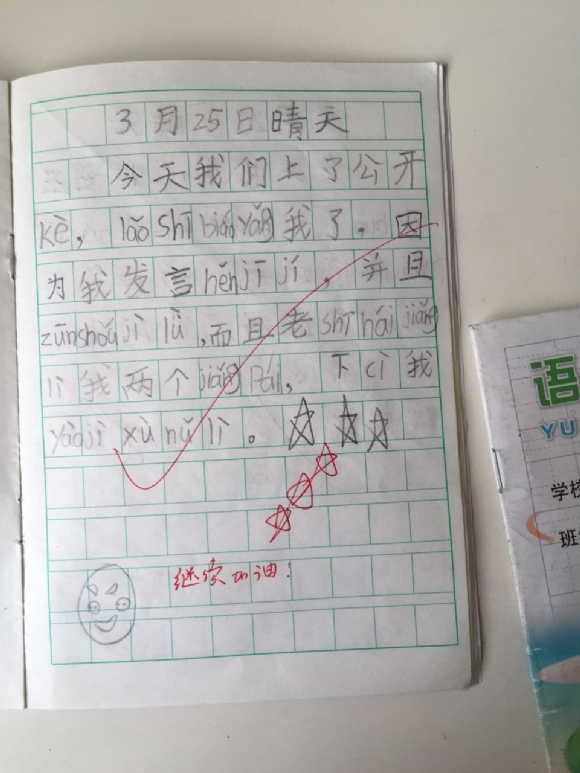 3月25日晴天
今天我们上了公开
kè，lǎo shī biáo yáng我了。因
为我发言hěn jī jí，并且
zūn shǒu jì lǜ，而且老shī hái jiǎng
lì我两个jiǎng pái，下cì我
yào jì xù nǔ lì。
继续加油！
语
YU
学校
班